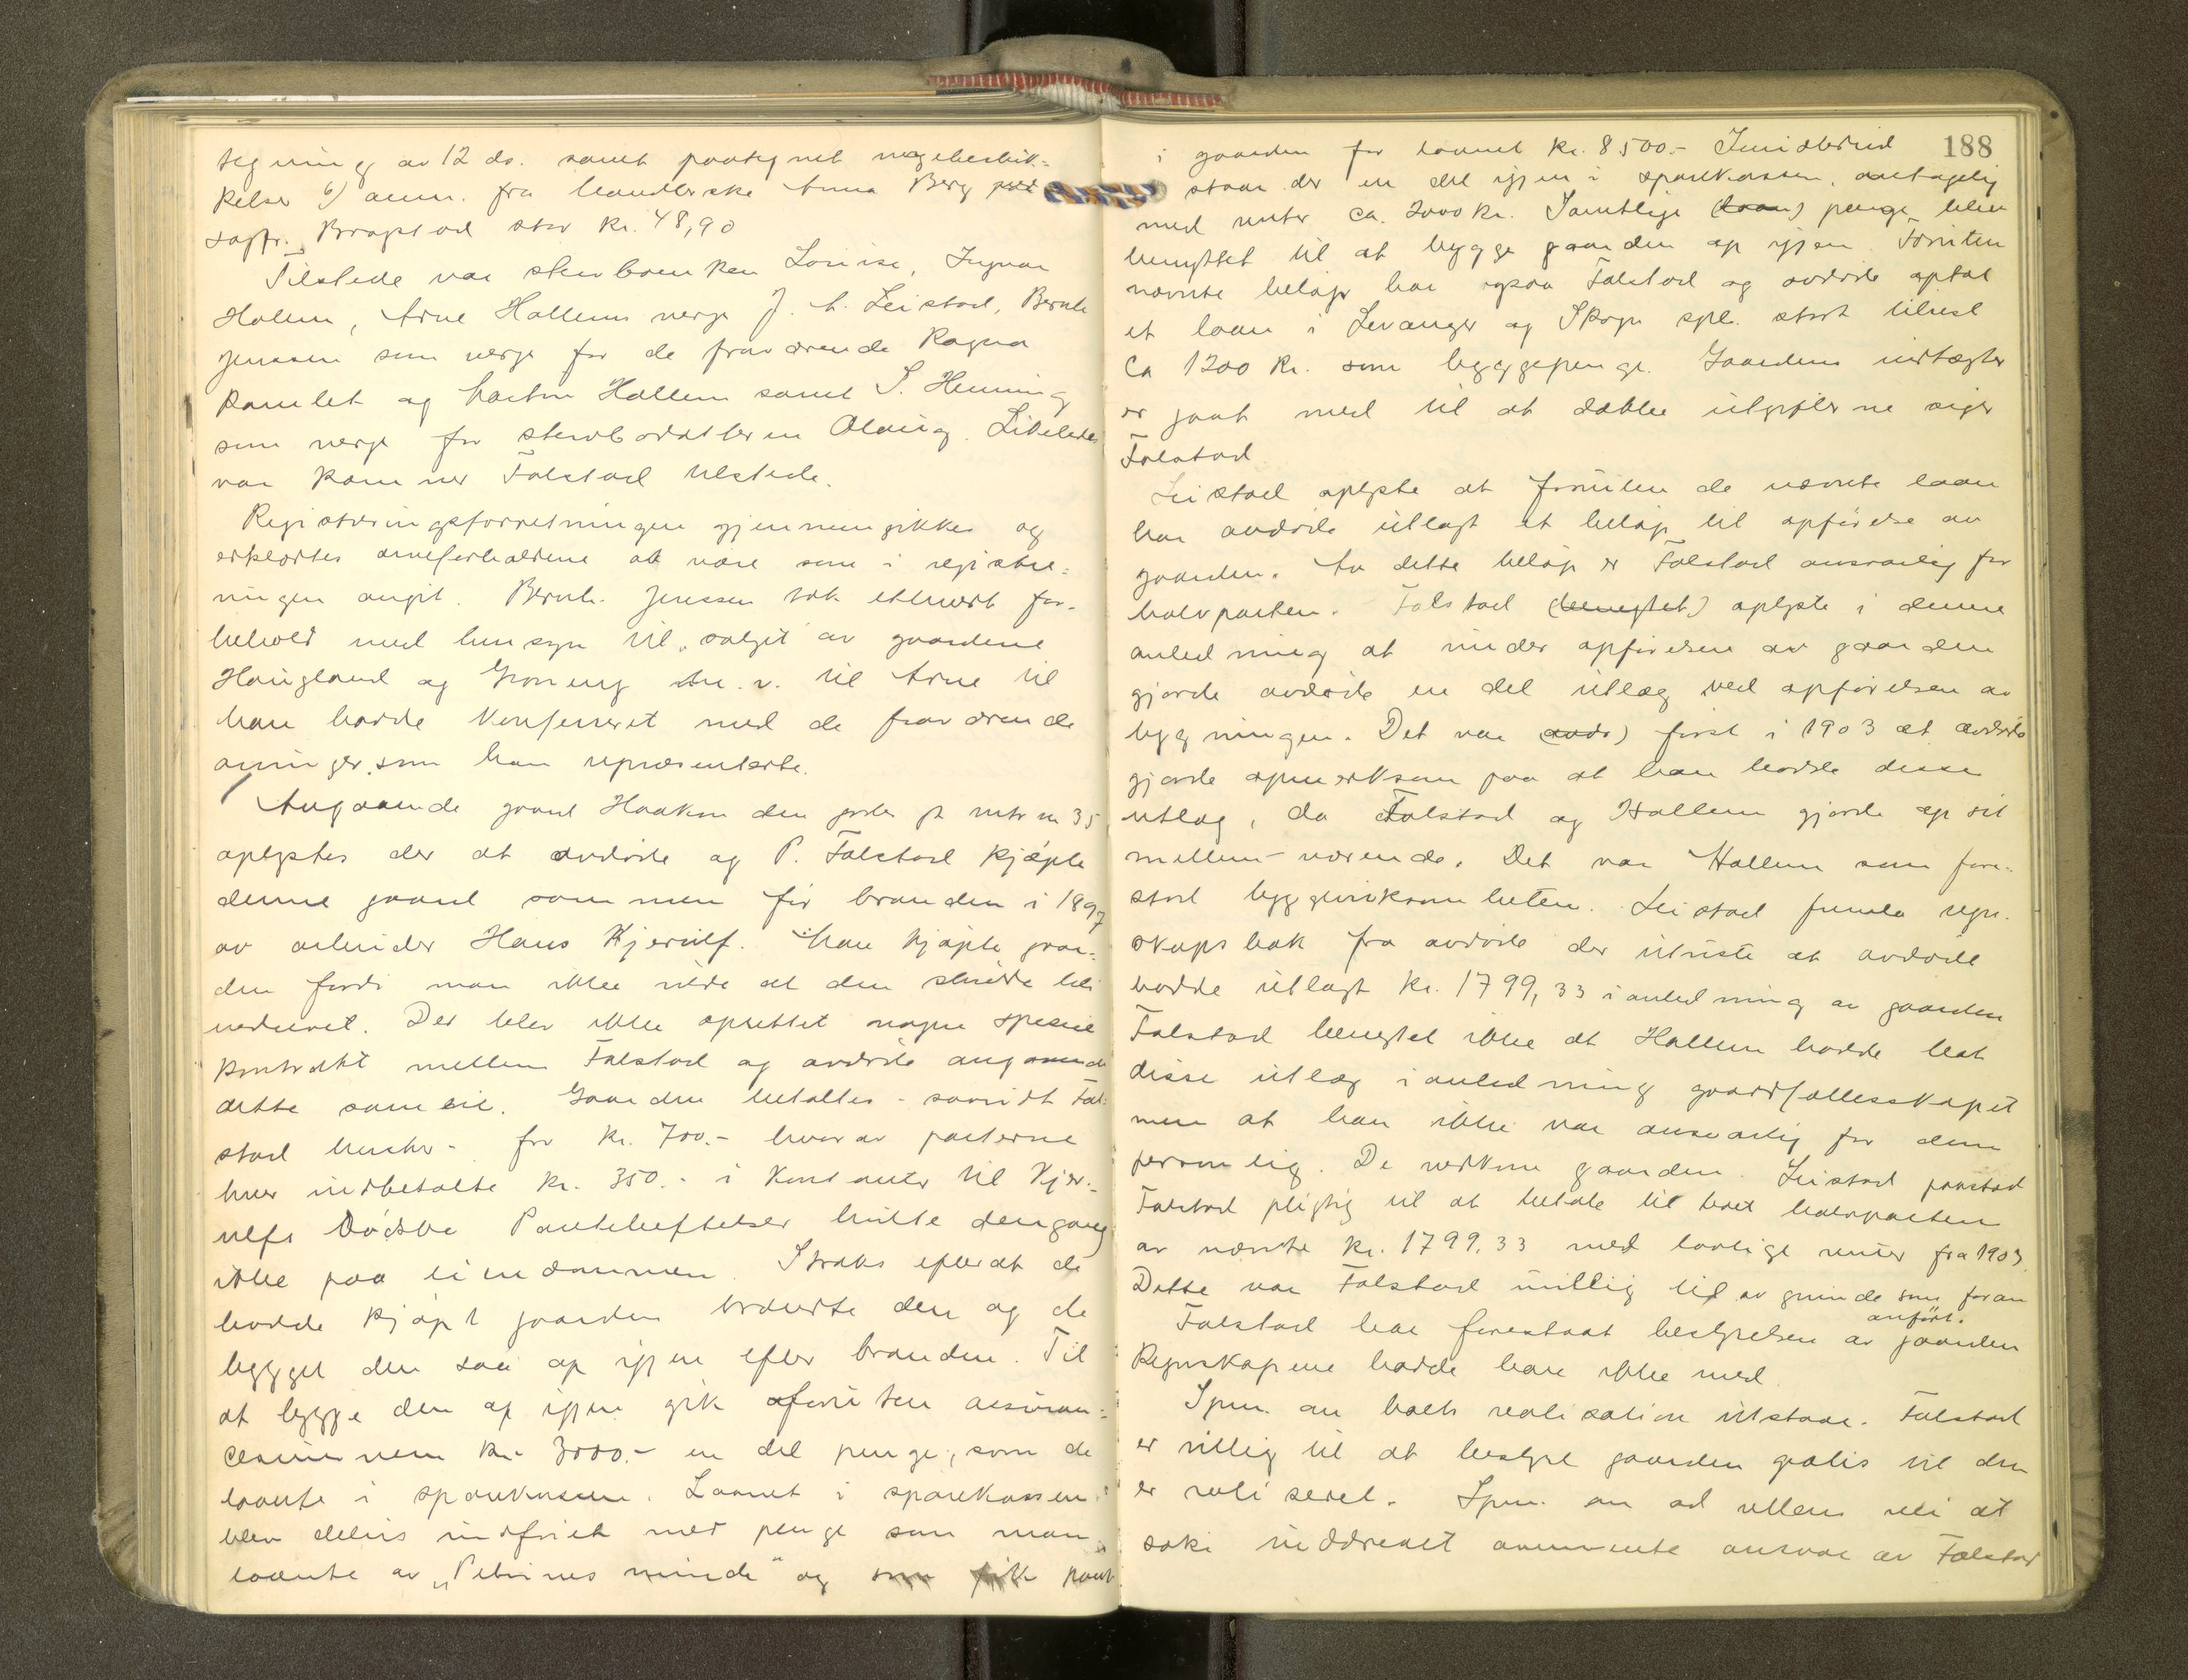 tegning av 12 ds. samt paategnet
kelse 6) anm. fra handlerske Anna Berg
sagfr. Bragstad stor kr. 48,90
Tilstede var sterboenken Louise, Ingvar
Hallem, Arne Hallems verge J. A. Leistad, Bernh
Jenssen som verge for de fraværende Ragna
Ramlet og Martin Hallem samt S. Henning
som verge for sterbodatteren Olaug. Likeledes
var kemner Falstad tilstede.
Registreringsforretningen gjennemgikkes og
erklærtes arveforholdene at være som i registre=
ringen angit. Bernh. Jenssen tok ethvert for-
behold med hensyn til "salget" av gaardene
Haugland og Groneng m. v. til Arne til
han hadde konferert med de fraværende
arvinger som han repræsenterte.
Angaaende gaard Haakon den godes gt matr nr 35
oplystes der at avdøde og P. Falstad kjøpte
denne gaard sammen før branden i 1897
av arbeider Hans Kjerulf. Man kjøpte gaar=
den fordi man ikke vilde at den skulde bli
vedrevet. Der blev ikke oprettet nogen speciel
kontrakt mellem Falstad og avdøde angaaende
dette sameie. Gaarden betaltes - saavidt Fal=
stad husker - for kr. 700.- hvorav parterne
hver indbetalte kr. 350.- i kontanter til Kjer=
ulfs dødsbo Pantehæftelser hvilte dengang
ikke paa eiendommen. Straks efterat de
hadde kjøpt gaarden brændte den og de
bygget den saa op igjen efter branden. Til
at bygge den op igjen gik foruten assuran=
cesummen kr. 3000.- en del penge, som de
laante i sparekassen. Laanet i sparekassen
blev delvis indfriet med penge som man
laante av "Petrines minde" og som fik pant
188
i gaarden for laanet kr. 8500.- Imidlertid
staar der en del igjen i sparekassen, antagelig
med renter ca. 2000 kr. Samtlige (laan) penge blev
benyttet til at bygge gaarden op igjen. Foruten
nævnte beløp har ogsaa Falstad og avdøde optat
et laan i Levanger og Skogn spk. stort tilrest
ca 1200 kr. som byggepenge. Gaardens indtægter
er gaat med til at dække utgifterne siger
Falstad
Leistad oplyste at foruten de nævnte laan
har avdøde utlagt et beløp til opførelse av
gaarden. Av dette beløp er Falstad ansvarlig for
halvparten. Falstad (benegtet) oplyste i denne
anledning at under opførelsen av gaarden
gjorde avdøde en del utlæg ved opførelsen av
bygningen. Det var (avdø) først i 1903 at avdøde
gjorde opmerksom paa at han hadde disse
utlæg, da Falstad og Hallem gjorde op sit
mellem-værende. Det var Hallem som fore-
stod byggevirksomheten. Leistad fremla regn-
skapsbok fra avdøde der utviste at avdøde
hadde utlagt kr. 1799,33 i anledning av gaarden
Falstad benegtet ikke at Hallem hadde hat
disse utlæg i anledning gaardfællesskapet
men at han ikke var ansvarlig for dem
personlig. De vedkom gaarden. Leistad paastod
Falstad pligtig til at betale til boet halvparten
av nævnte kr. 1799.33 med lovlige renter fra 1903.
Dette var Falstad uvillig til av grunde som foran
anført.
Falstad har forestaat bestyrelsen av gaarden
Regnskapene hadde han ikke med.
Spm. om boets realisation utstaar. Falstad
er villig til at bestyre gaarden gratis til den
er realiseret. Spm. om at ville at
søke inddrevet ansvar av Falstad